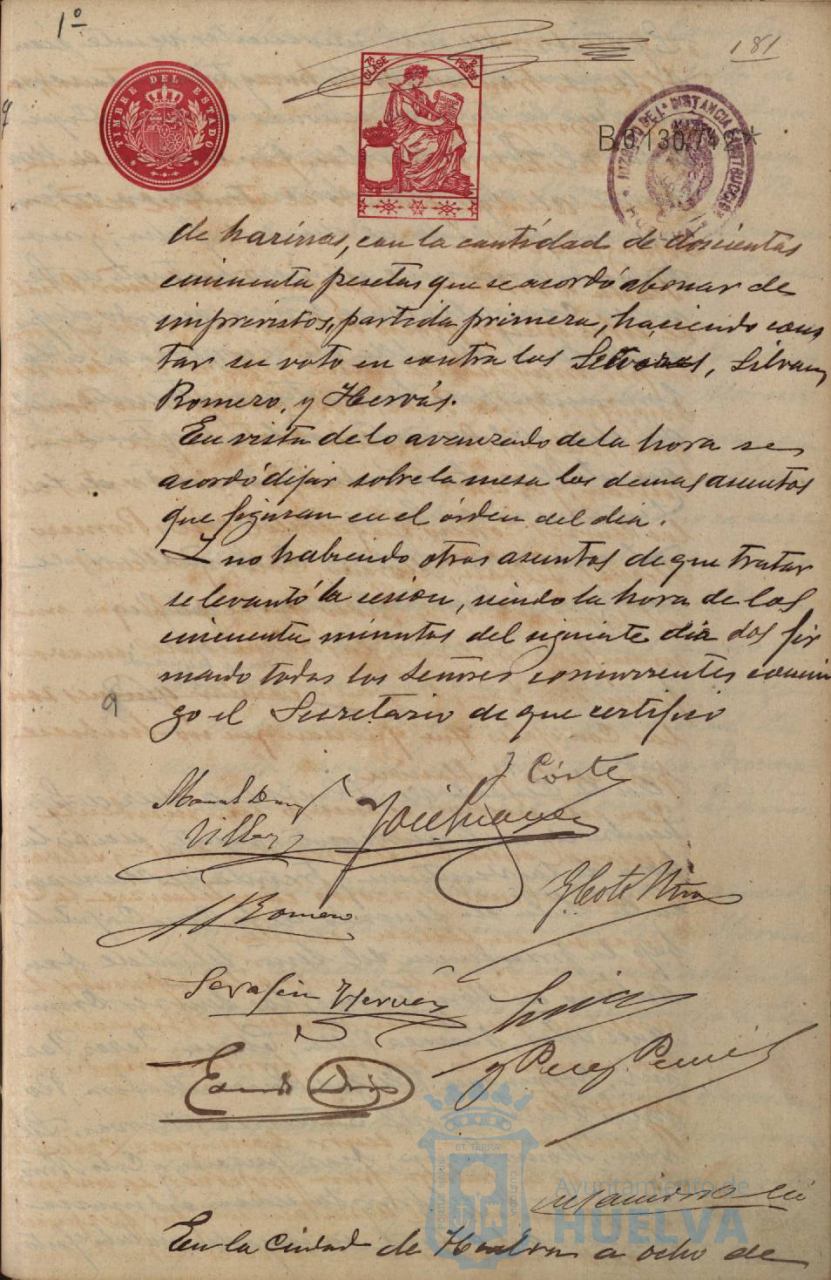 1º
181
TIMBRE DEL ESTADO
7ª CLASE
PESETA
B.0.130.7
JUZGADO DE 1ª DISTANCIA É INSTRUCCION
de harinas, con la cantidad de doscientas
cincuenta pesetas que se acordó abonar de
imprevistos, partida primera, haciendo cons
tar su voto en contra los Señores, Silvan,
Romero, y Hervás.
En vista de lo avanzado de la hora se
acordó dejar sobre la mesa los demas asuntos
que figuran en el órden del dia.
Y no habiendo otros asuntos de que tratar
se levantó la sesion, siendo la hora de las
cincuenta minutos del siguiente dia dos fir
mando todos los Señores concurrentes conmi
go el Secretario de que certifico
J Córte
Manuel
Villa
Romero
Coto Mora
Serafin Hervás
Perez
Ayuntamiento de
HUELVA
En la Ciudad de Huelva a ocho de